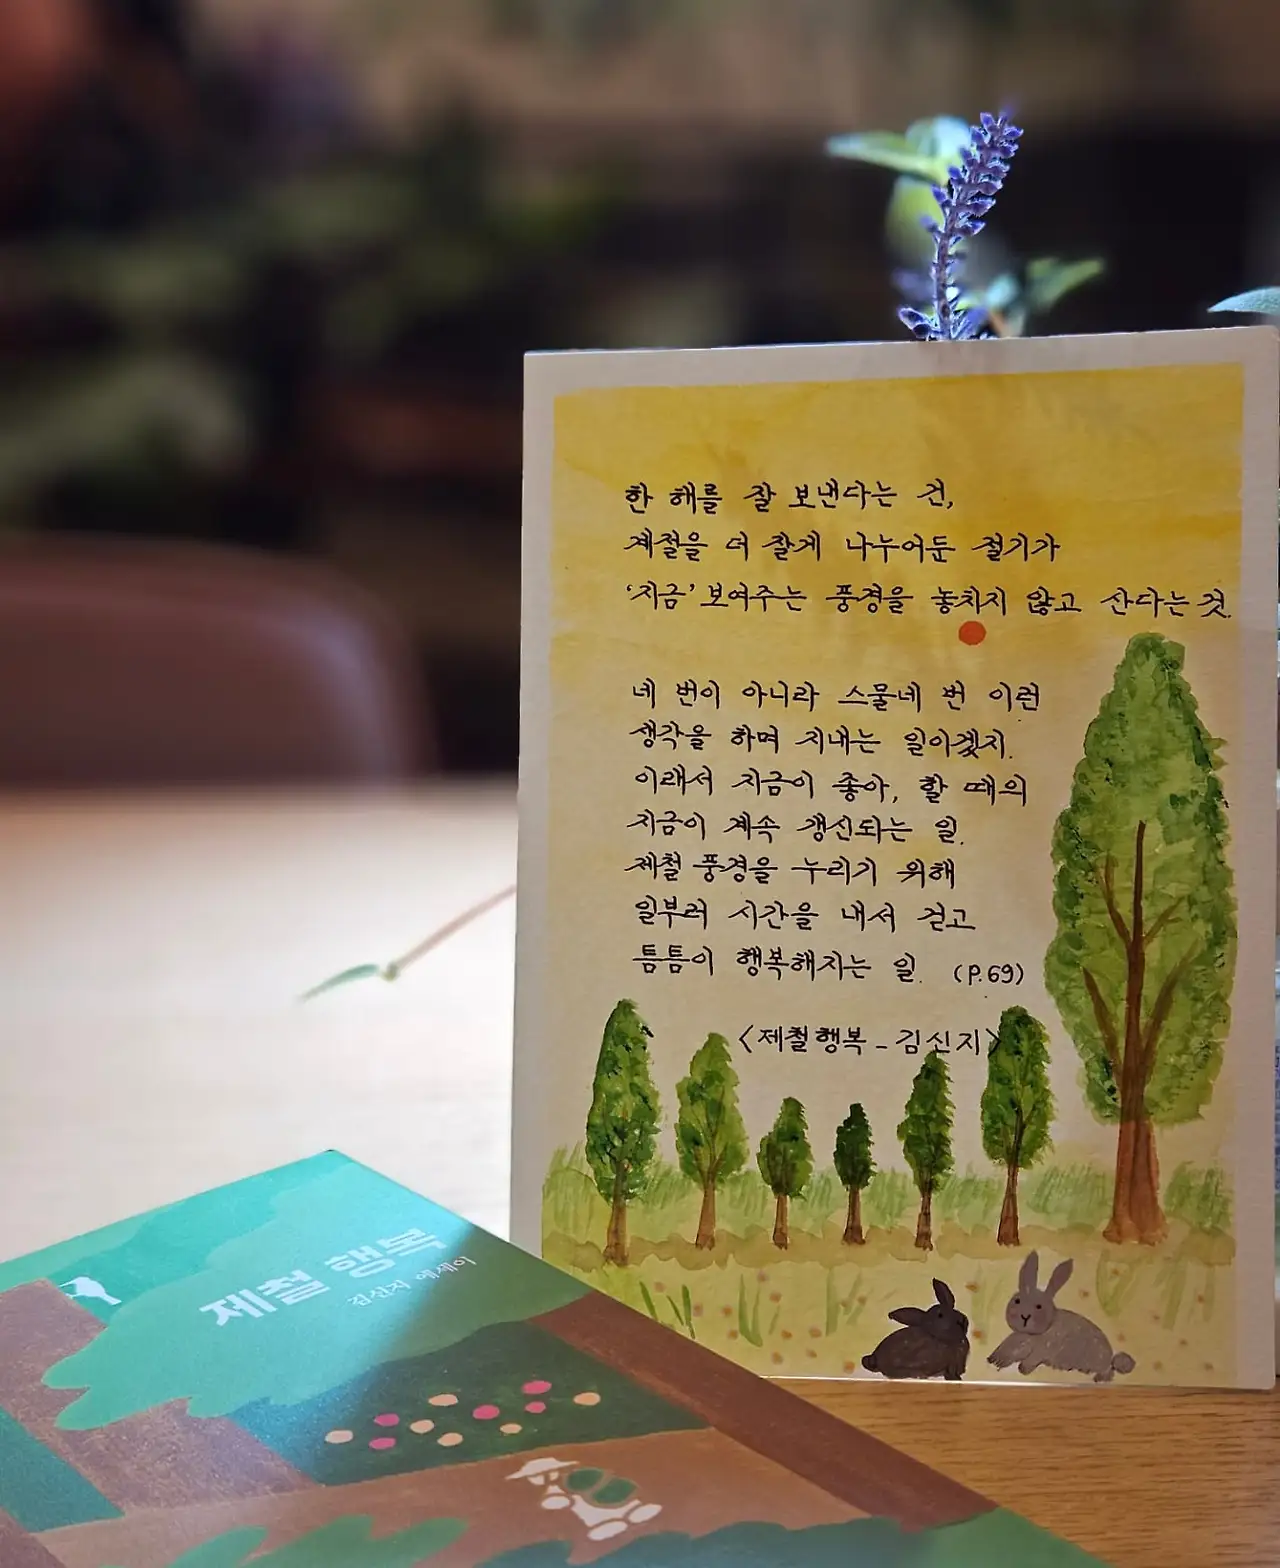 한 해를 잘 보낸다는 건,
계절을 더 잘게 나누어둔 절기가
‘지금’ 보여주는 풍경을 놓치지 않고 산다는 것.
네 번이 아니라 스물네 번 이런
생각을 하며 지내는 일이겠지.
이래서 지금이 좋아, 할 때의
지금이 계속 갱신되는 일.
제철 풍경을 누리기 위해
일부러 시간을 내서 걷고
틈틈이 행복해지는 일. (P.69)
<제철행복 - 김신지>
제철 행복
김신지 에세이